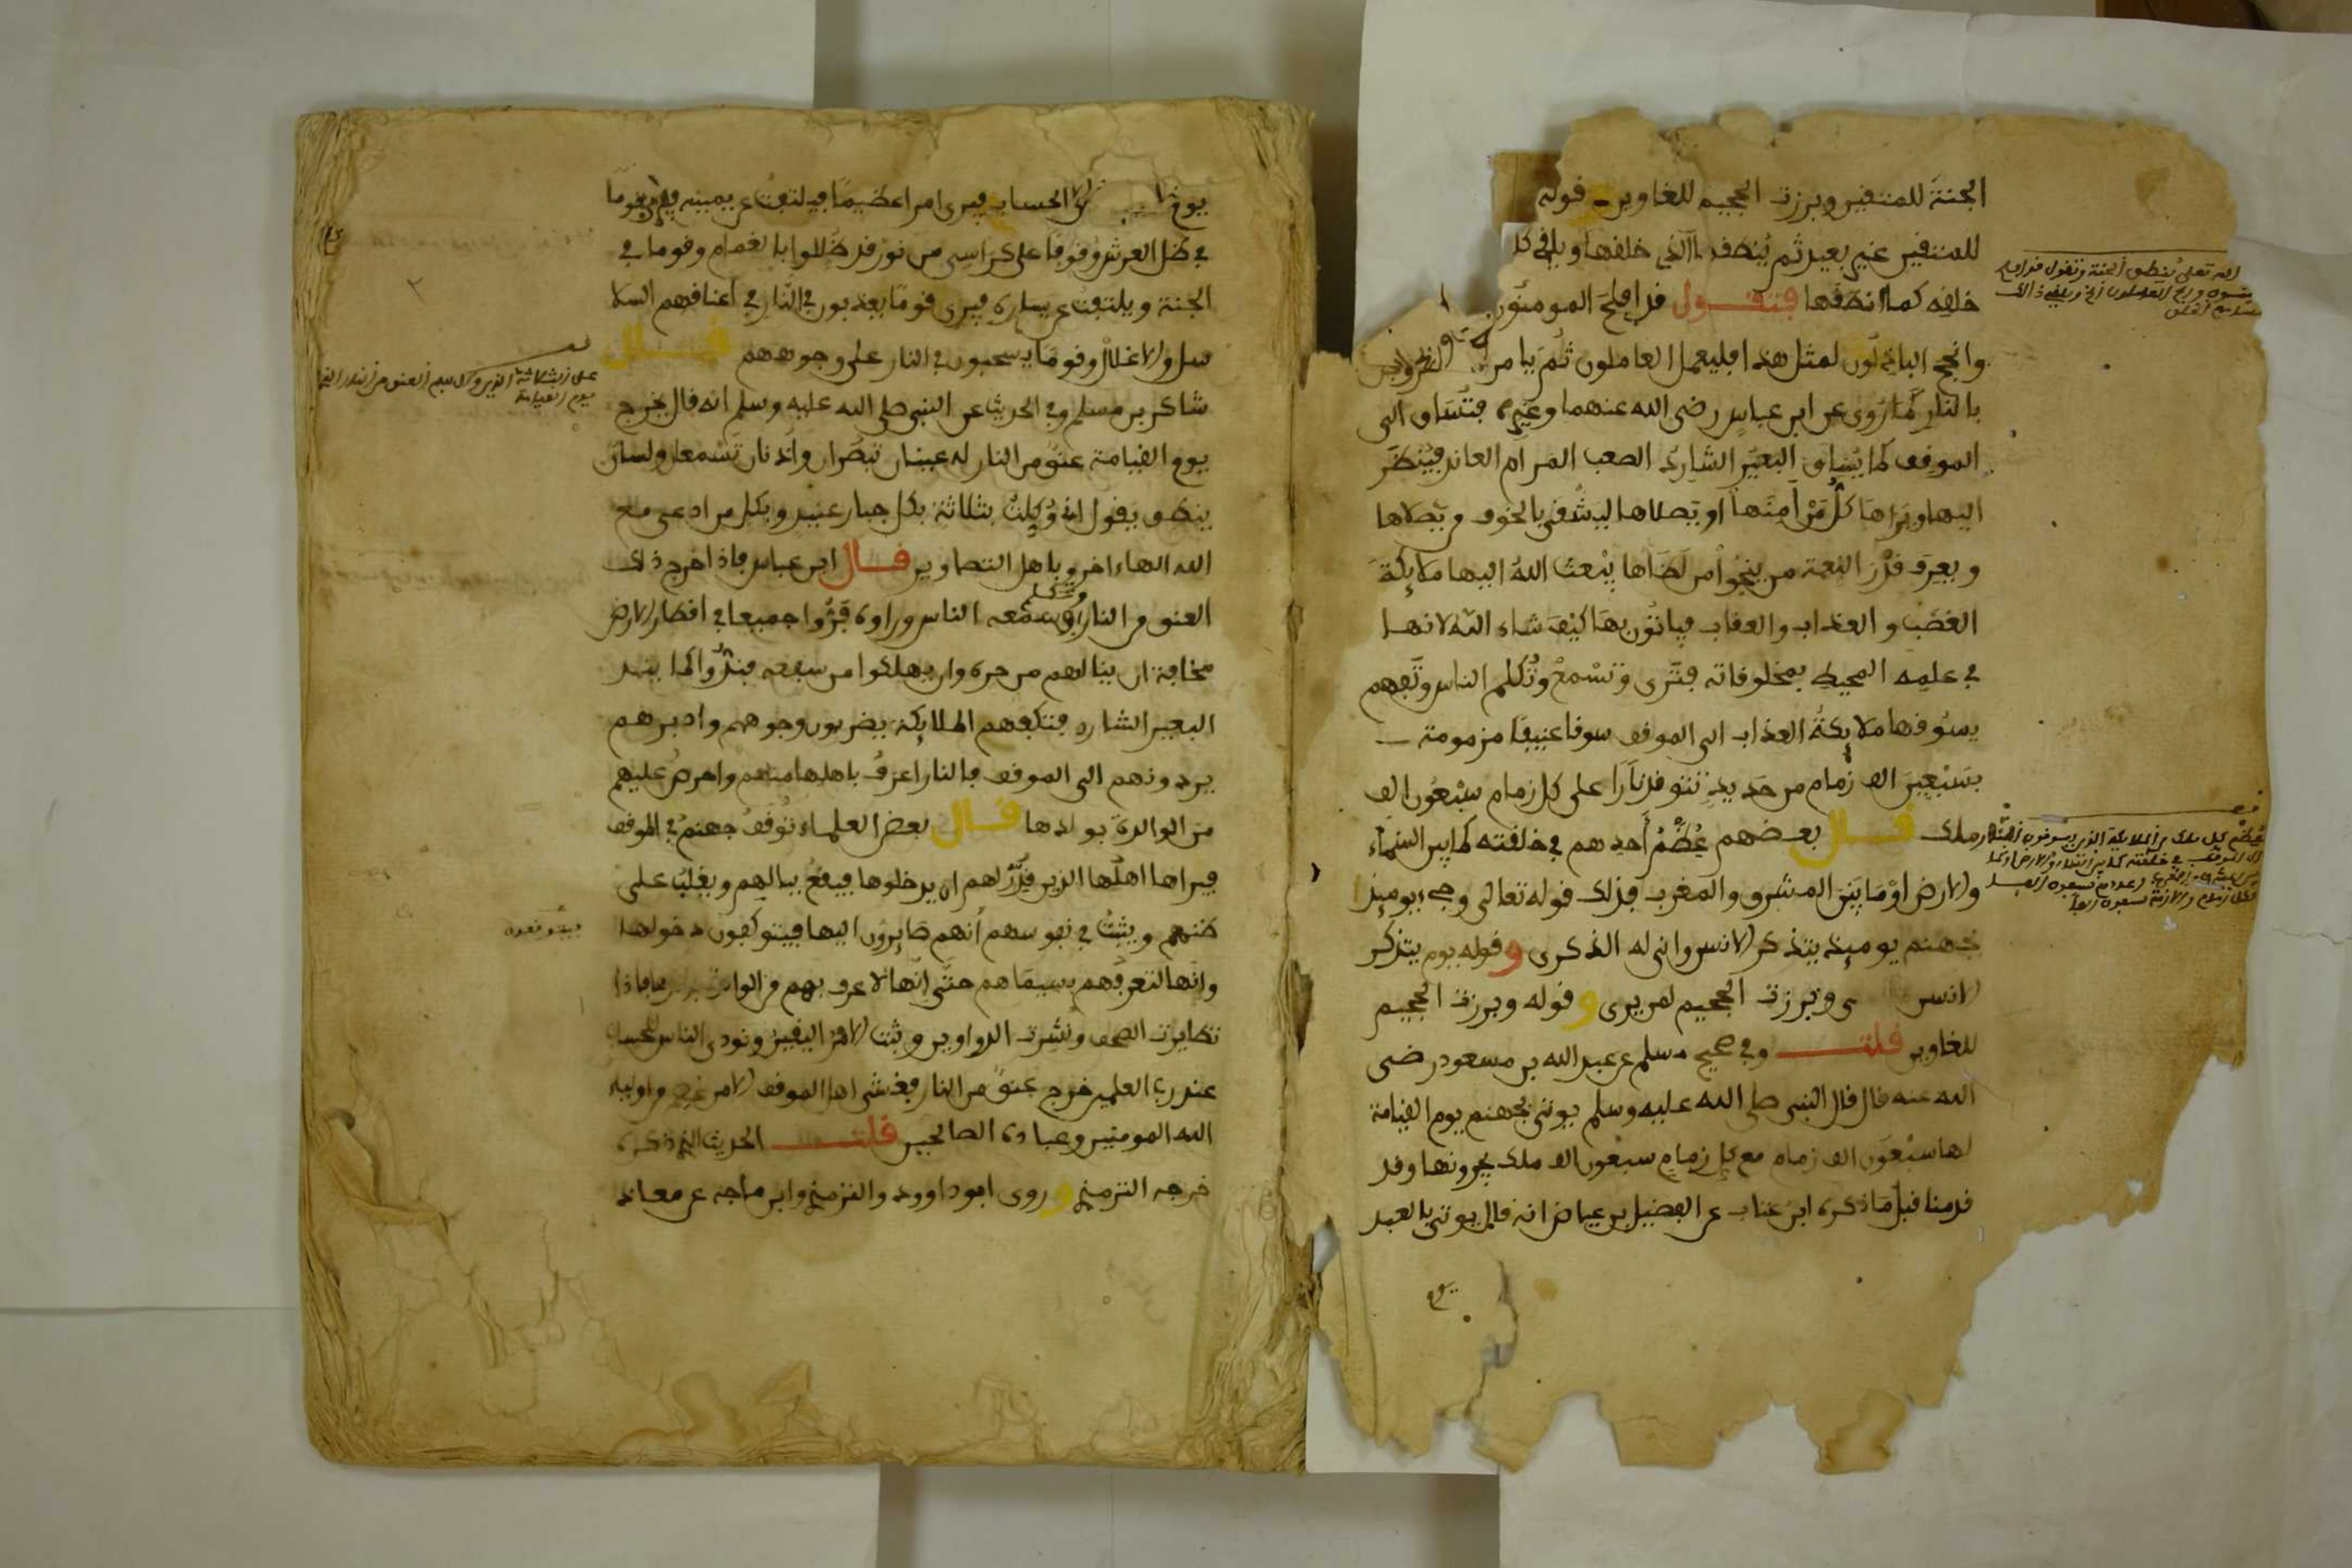 الجنة للمتقين وبرزت الجحيم للغاوين قوله
للمتقين غير بعيد ثم ينطقها الذي خلقها ويلقي كل
خلقه كما أنطقها فتقول قد افلح المومنون
وانجح الباذلون لمثل هذا فليعمل العاملون ثم يامر
بالنار كما روي عن ابن عباس رضي الله عنهما وغيره فتساق الى
الموقف كما يساق البعير الشارد الصعب المرام العاند فينظر
اليها ويراها كل من أمنها او يصلاها ليشقى بالخوف من يصلاها
ويعرف قدر النعمة من ينجوا من لظاها يبعث الله اليها ملايكة
الغضب والعذاب والعقاب فياتون بها كيف شاء الله لانها
في علمه المحيط بمخلوقاته فترى وتسمع وتكلم الناس وتفهم
يسوقها ملايكة العذاب الى الموقف سوقا عنيفا مزمومة
بسبعين الف زمام من حديد تتوقد نارا على كل زمام سبعون الف
ملك قال بعضهم عظم أحدهم في خلقته كما بين السماء
والارض او ما بين المشرق والمغرب فذلك قوله تعالى وجيء يوميذ
بجهنم يوميذ يتذكر الانسن وانى له الذكرى وقوله يوم يتذكر
الانسن وبرزت الجحيم لمن يرى وقوله وبرزت الجحيم
للغاوين قلت وفي صحيح مسلم عن عبد الله بن مسعود رضي
الله عنه قال قال النبي صلى الله عليه وسلم يوتى بجهنم يوم القيامة
لها سبعون الف زمام مع كل زمام سبعون الف ملك يجرونها وقد
قدمنا قبل ما ذكره ابن عتاب عن الفضيل بن عياض انه قال يوتى بالعبد
يوم
يوم الحساب فيرى امرا عظيما فيلتفت عن يمينه فيرى قوما
في ظل العرش وقوفا على كراسي من نور قد ظللوا بالغمام وقوما في
الجنة ويلتفت عن يساره فيرى قوما يعذبون في النار في أعناقهم السلا
سل والاغلال وقوما يسحبون في النار على وجوههم قال
شاكر بن مسلم وفي الحديث عن النبي صلى الله عليه وسلم انه قال يخرج
يوم القيامة عنق من النار له عينان تبصران وأذنان تسمعان ولسان
ينطق يقول اني وكلت بثلاثة بكل جبار عنيد وبكل من ادعى مع
الله الها ءاخر وباهل التصاوير قال ابن عباس فاذا اخرج ذلك
العنق من النار وتكلم وسمعه الناس وراوه فروا جميعا في اقطار الارض
مخافة ان ينالهم من حره وان يهلكوا من سفعه فيندوا كما يند
البعير الشارد فتكفهم الملايكة يضربون وجوههم وادبرهم
يردونهم الى الموقف فالنار اعرف باهلها منهم واحرص عليهم
من الوالدة بولدها قال بعض العلماء توقف جهنم في الموقف
فيراها اهلها الذين قدر لهم ان يدخلوها فيقع ببالهم ويغلب على
ظنهم ويثبت في نفوسهم أنهم صايرون اليها فيتوكفون دخولها
وانها لتعرفهم بسيماهم حتى انها لاعرف بهم من الوالدة فاذا
تطايرت الصحف ونشرت الدواوين وثبت الامر اليقين ونودي الناس للحساب
عند رب العلمين خرج عنق من النار فغشى اهل الموقف الامن واولياء
الله المومنين وعباده الصالحين قلت الحديث الذي ذكره
خرجه الترمذي وروى ابو داوود والترمذي وابن ماجه عن معاذ